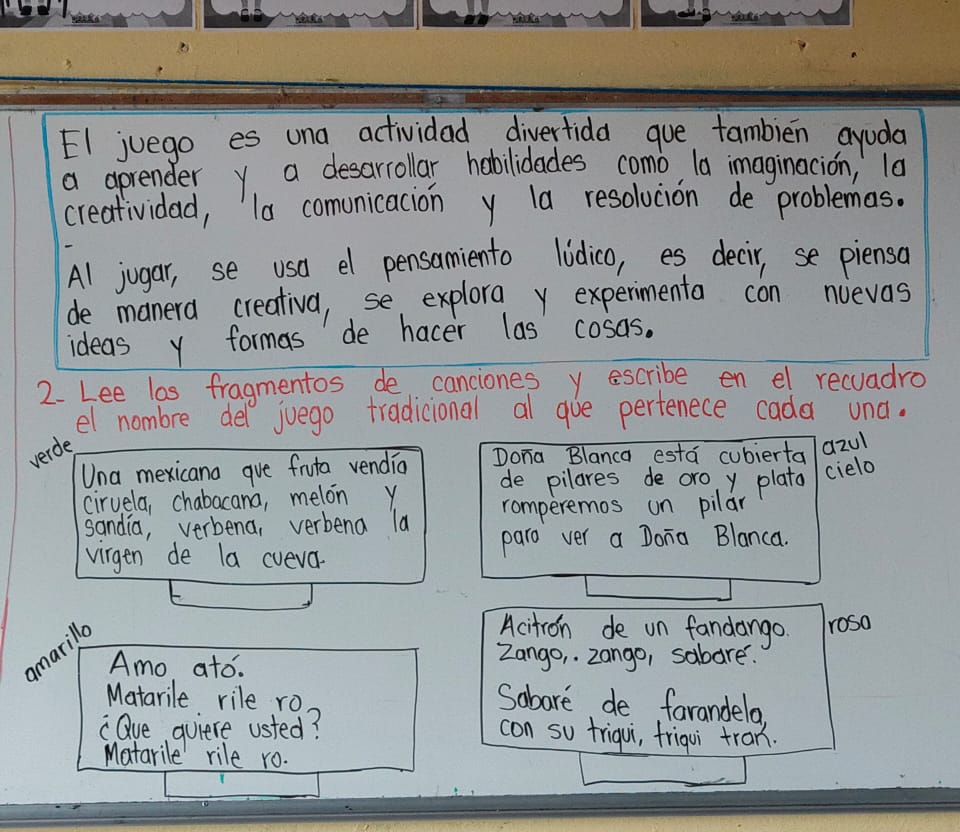 El juego es una actividad divertida que también ayuda
a aprender y a desarrollar habilidades como la imaginación, la
creatividad, la comunicación y la resolución de problemas.
Al jugar, se usa el pensamiento lúdico, es decir, se piensa
de manera creativa, se explora y experimenta con nuevas
ideas y formas de hacer las cosas.
2- Lee los fragmentos de canciones y escribe en el recuadro
el nombre del juego tradicional al que pertenece cada una.
verde
Una mexicana que fruta vendía
ciruela, chabacana, melón y
sandía, verbena, verbena la
virgen de la cueva.
azul
cielo
Doña Blanca está cubierta
de pilares de oro y plata
romperemos un pilar
para ver a Doña Blanca.
amarillo
Amo ató.
Matarile rile ro
¿Que quiere usted?
Matarile rile ro.
rosa
Acitrón de un fandango.
Zango,. zango, sabaré.
Sabaré de farandela,
con su triqui, triqui tran.